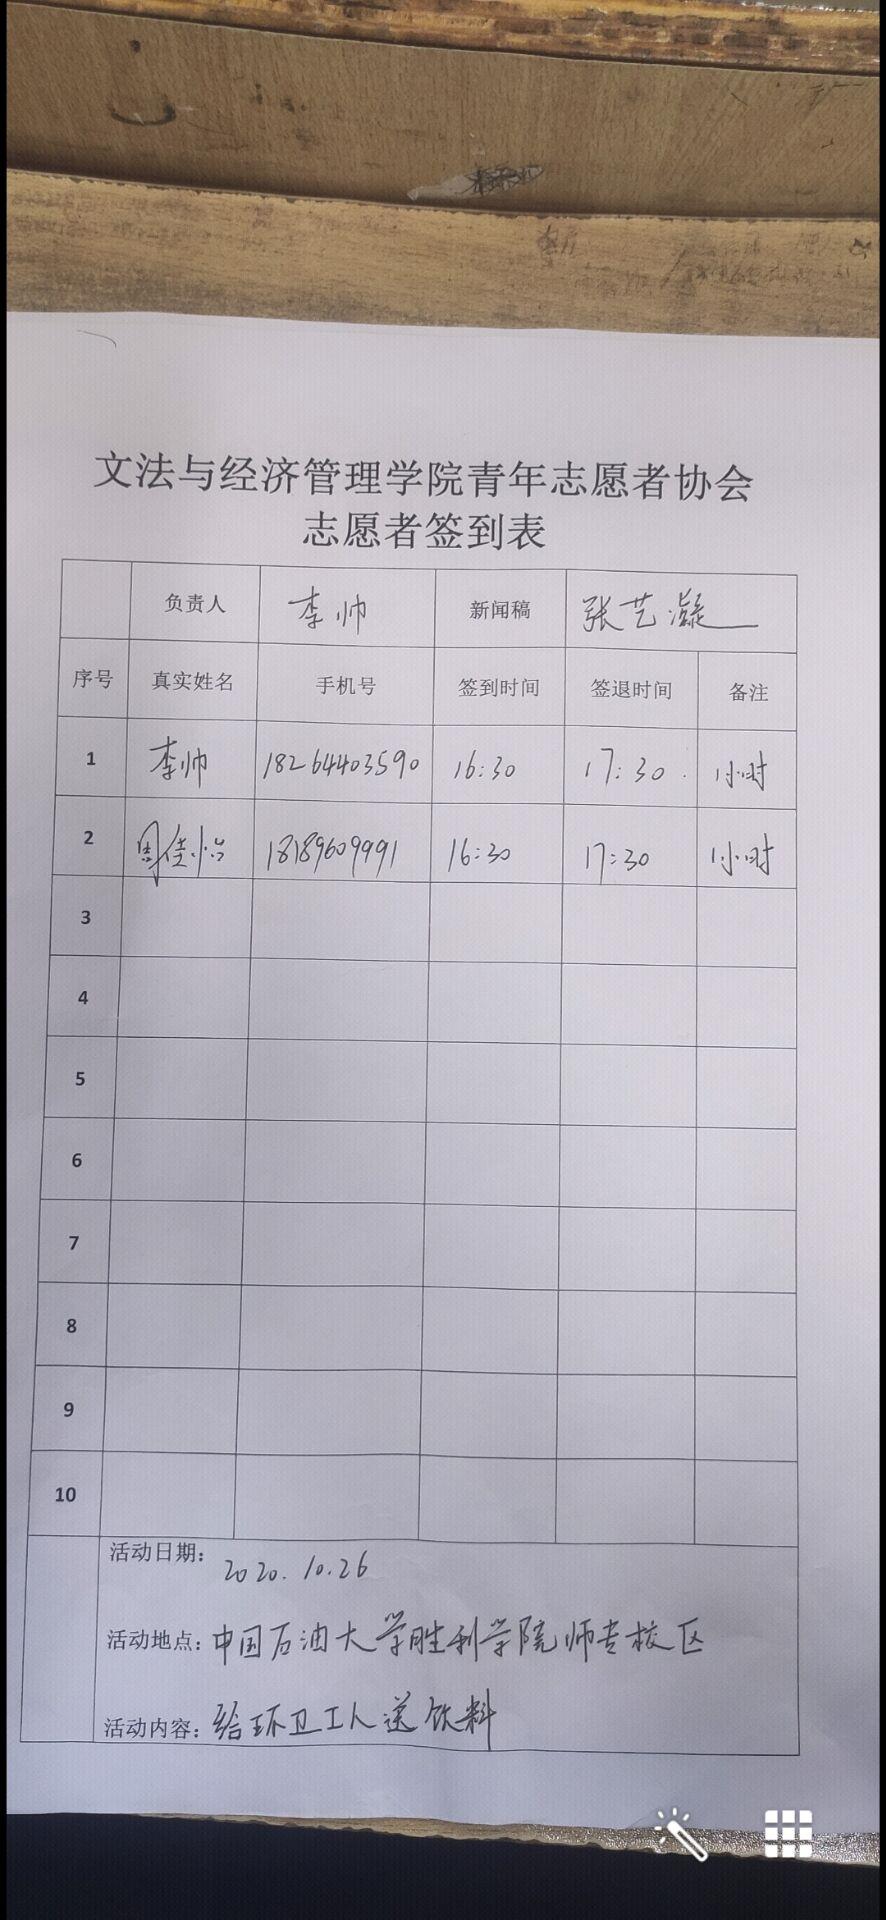 文法与经济管理学院青年志愿者协会
志愿者签到表
负责人 李帅 新闻稿 张艺凝
序号 真实姓名 手机号 签到时间 签退时间 备注
1 李帅 18264403590 16:30 17:30 1小时
2 周佳怡 18189609991 16:30 17:30 1小时
3
4
5
6
7
8
9
10
活动日期: 2020.10.26
活动地点: 中国石油大学胜利学院师专校区
活动内容: 给环卫工人送饮料